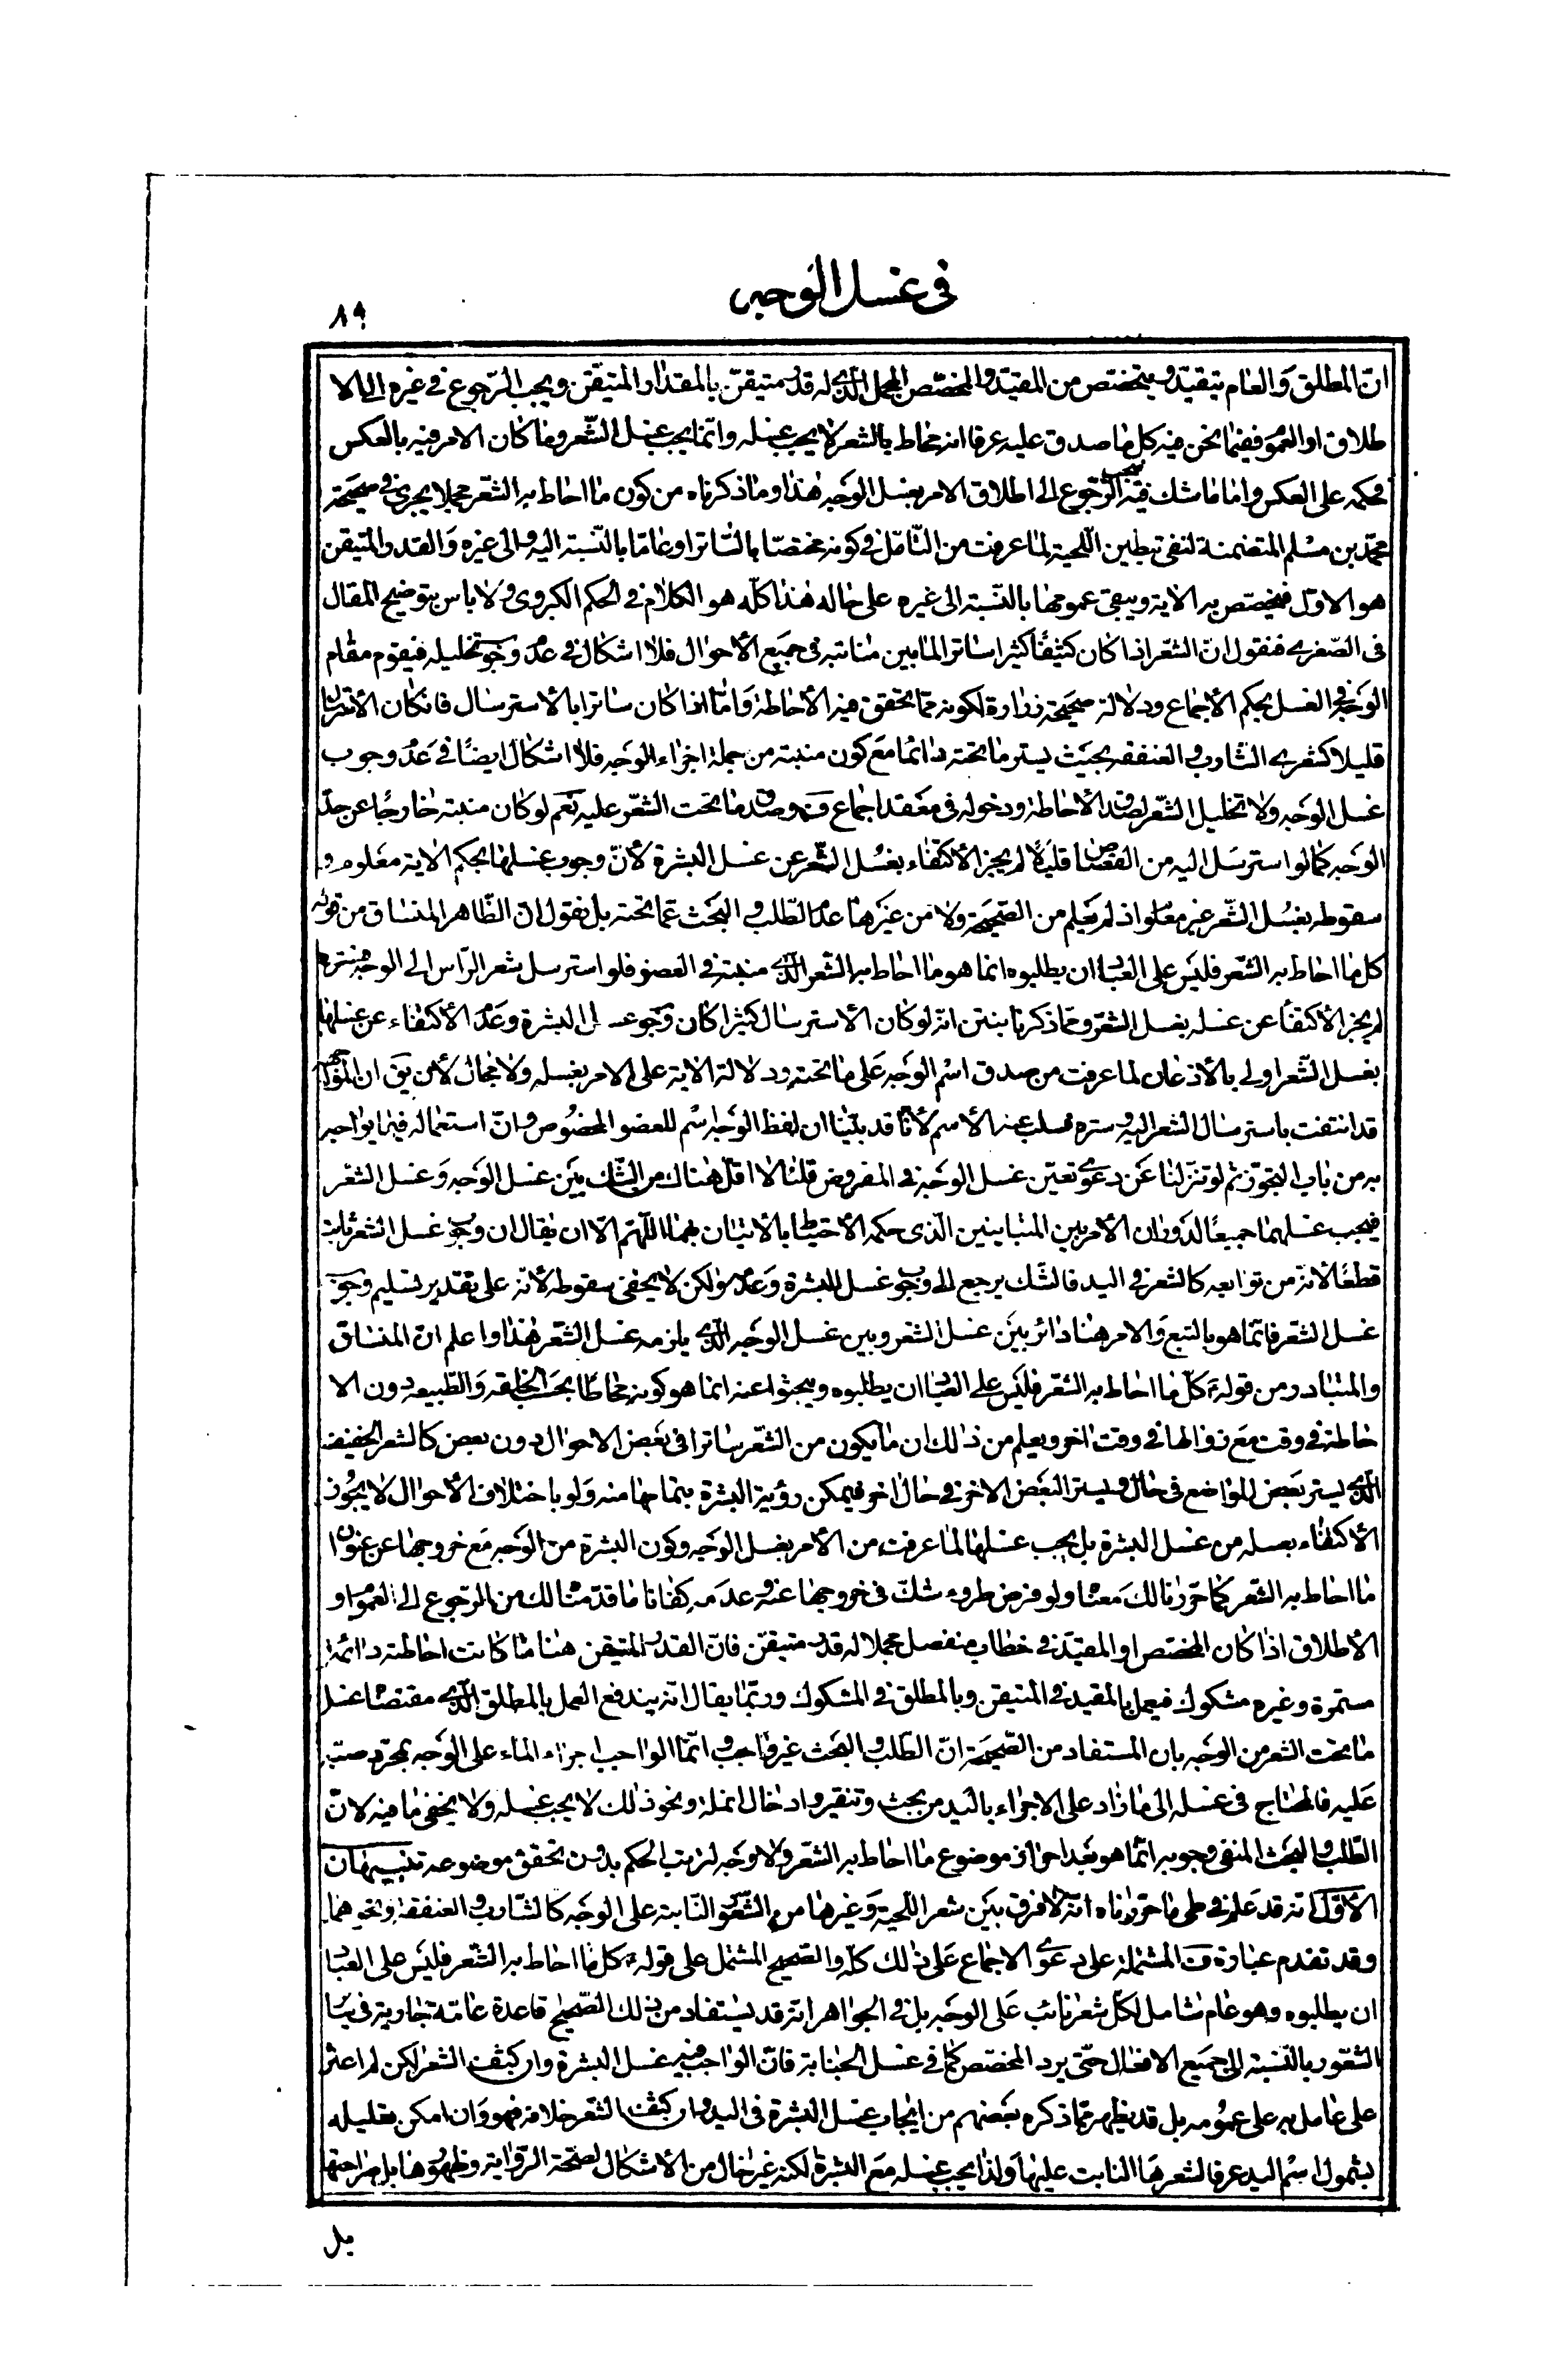 فی غسل الوجه
٨٩
انّ المطلق والعام يتقيّد ويتخصّص من المقيّد والمخصّص المجمل الّذی له قدر متيقّن بالمقدار المتيقّن ويجب الرّجوع فی غيره الی الا
طلاق او العموم ففيما نحن فيه كل ما صدق عليه عرفا انه محاط بالشعر لا يجب غسله وانّما يجب غسل الشّعر وما كان الامر فيه بالعكس
فحكمه علی العكس واما ما شك فيه فيجب الرّجوع الی اطلاق الامر بغسل الوجه هذا وما ذكرناه من كون ما احاط به الشّعر مجملا يجری فی صحيحة
محمّد بن مسلم المتضمنة لنفی تبطين اللّحية لما عرفت من التّامّل فی كونه مختصّا بالسّاتر او عامّا بالنّسبة اليه والی غيره والقدر المتيقن
هو الاوّل فيخصّص به الاية ويبقی عمومها بالنّسبة الی غيره علی حاله هذا كلّه هو الكلام فی الحكم الكبروی ولا باس بتوضيح المقال
فی الصّغری فنقول انّ الشّعر اذا كان كثيفًا كثيرا ساترا لما بين منابته فی جميع الأحوال فلا اشكال فی عدم وجوب تخليله فيقوم مقام
الوجه فی الغسل بحكم الأجماع ودلالة صحيحة زرارة لكونه ممّا يتحقق فيه الأحاطة وامّا اذا كان ساترا بالأسترسال فان كان الأسترسال
قليلا كشعری الشّارب والعنفقه بحيث يستر ما تحته دائما مع كون منبته من جملة اجزاء الوجه فلا اشكال ايضًا فی عدم وجوب
غسل الوجه ولا تخليل الشّعر لصدق الأحاطة ودخوله فی معقد اجماع ف وصدق ما تحت الشّعر عليه نعم لو كان منبته خارجًا عن حدّ
الوجه كما لو استرسل اليه من القصاص قليلا لم يجز الأكتفاء بغسل الشّعر عن غسل البشرة لأنّ وجوب غسلها بحكم الاية معلوم و
سقوطه بغسل الشّعر غير معلوم اذ لم يعلم من الصّحيحة ولا من غيرها عدم الطّلب والبحث عمّا تحته بل نقول انّ الظّاهر المنساق من قوله
كل ما احاط به الشّعر فليس علی العباد ان يطلبوه انما هو ما احاط به الشّعر الّذی منبته فی العضو فلو استرسل شعر الرّاس الی الوجه فستره
لم يجز الأكتفاء عن غسله بغسل الشّعر وممّا ذكرنا يتبيّن انّه لو كان الأسترسال كثيرا كان وجوعه الی البشرة وعدم الأكتفاء عن غسلها
بغسل الشّعر اولی بالأذعان لما عرفت من صدق اسم الوجه علی ما تحته ودلالة الاية علی الامر بغسله ولا مجال لأن يق ان المواجهة
قد انتفت باسترسال الشعر اليه وستره فسلب عنه الأسم لأنّا قد بيّنا ان لفظ الوجه اسم للعضو المخصوص وانّ استعماله فيما يواجه
به من باب التجوّز ثم لو تنزّلنا عن دعوی تعيّن غسل الوجه فی المفروض قلنا لا اقلّ هناك من الشّك بين غسل الوجه وغسل الشّعر
فيجب غسلهما جميعًا لدوران الأمر بين المتباينين الّذی حكمه الأحتياط بالأتيان بهما اللّهمّ الّا ان يقال ان وجوب غسل الشعر ثابت
قطعًا لأنّه من توابعه كالشعر فی اليد فالشّك يرجع الی وجوب غسل البشرة وعدمه ولكن لا يخفی سقوطه لأنّه علی تقدير تسليم وجوب
غسل الشعر فانّما هو بالتبع والامر هنا دائر بين غسل الشعر وبين غسل الوجه الّذی يلزمه غسل الشّعر هذا واعلم انّ المنساق
والمتبادر من قوله ع كلّ ما احاط به الشّعر فليس علی العباد ان يطلبوه ويبحثوا عنه انما هو كونه محاطًا بحسب الخلقه والطّبيعه دون الا
حاطة فی وقت مع زوالها فی وقت اخر ويعلم من ذلك ان ما يكون من الشّعر ساترا فی بعض الاحوال دون بعض كالشعر الخفيف
الّذی يستر بعض المواضع فی حال ويستر البعض الاخر فی حال اخر فيمكن رؤية البشرة بتمامها منه ولو باختلاف الأحوال لا يجوز
الأكتفاء بغسله من غسل البشرة بل يجب غسلها لما عرفت من الأمر بغسل الوجه وكون البشرة من الوجه مع خروجها عن عنوان
ما احاط به الشّعر كما حرّرنا لك معناه ولو فرض طروء شكّ فی خروجها عنه وعدمه كفانا ما قدّمنا لك من الرّجوع الی العموم او
الأطلاق اذا كان المخصّص او المقيّد فی خطاب منفصل مجملا له قدر متيقّن فانّ القدر المتيقن هنا ما كانت احاطته دائمة
مستمرة وغيره مشكوك فيعمل بالمقيد فی المتيقن وبالمطلق فی المشكوك وربّما يقال انّه يندفع العمل بالمطلق الّذی مقتضاه غسل
ما تحت الشعر من الوجه بان المستفاد من الصّحيحة انّ الطّلب والبحث غير واجب وانّما الواجب اجراء الماء علی الوجه بمجرّد صبّه
عليه فالمحتاج فی غسله الی ما زاد علی الاجراء باليد من بحث وتنقير وادخال انملة ونحو ذلك لا يجب غسله ولا يخفی ما فيه لانّ
الطّلب والبحث المنفی وجوبه انّما هو بعد احراز موضوع ما احاط به الشّعر ولا وجه لترتب الحكم بدون تحقق موضوعه تنبيهان
الأوّل انّه قد علم فی طی ما حرّرناه انّه لا فرق بين شعر اللّحية وغيرها من الشّعور النّابتة علی الوجه كالشّارب والعنفقة ونحوهما
وقد تقدم عبارة ف المشتملة علی دعوی الاجماع علی ذلك كلّه والصّحيح المشتمل علی قوله ع كل ما احاط به الشّعر فليس علی العباد
ان يطلبوه وهو عام شامل لكلّ شعر نابت علی الوجه بل فی الجواهر انّه قد يستفاد من ذلك الصّحيح قاعدة عامّة جارية فی سائر
الشّعور بالنّسبة الی جميع الافعال حتّی يرد المخصّص كما فی غسل الجنابة فانّ الواجب فيه غسل البشرة وان كثف الشعر لكن لم اعثر
علی عامل به علی عمومه بل قد يظهر ممّا ذكره بعضهم من ايجاب غسل البشرة فی اليد وان كثف الشّعر خلافه فهو وان امكن تعليله
بشمول اسم اليد عرفا لشعرها النابت عليها ولذا يجب غسله مع البشرة لكنه غير خال من الأشكال لصحّة الرّواية وظهورها بل صراحتها
بل